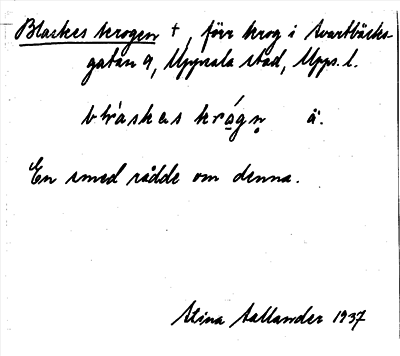 Blaskes krogen †, förr krog i Svartbäcks-
gatan 9, Uppsala stad, Upps. l.
blaskes krogn ä.
En smed rådde om denna.
Stina Sallander 1937